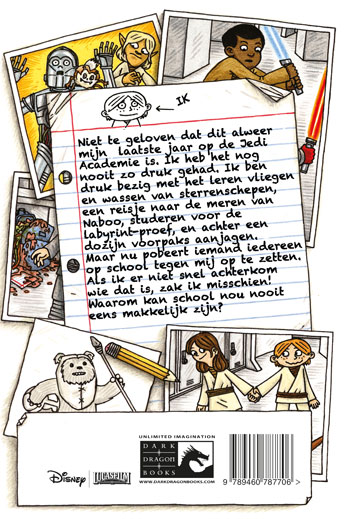 IK
Niet te geloven dat dit alweer
mijn laatste jaar op de Jedi
Academie is. Ik heb het nog
nooit zo druk gehad. Ik ben
druk bezig met het leren vliegen
en wassen van sterrenschepen,
een reisje naar de meren van
Naboo, studeren voor de
labyrint-proef, en achter een
dozijn voorpaks aanjagen.
Maar nu probeert iemand iedereen
op school tegen mij op te zetten.
Als ik er niet snel achterkom
wie dat is, zak ik misschien!
Waarom kan school nou nooit
eens makkelijk zijn?
UNLIMITED IMAGINATION
DARK
DRAGON
BOOKS
WWW.DARKDRAGONBOOKS.COM
Disney
LUCASFILM
9 789460 787706 >